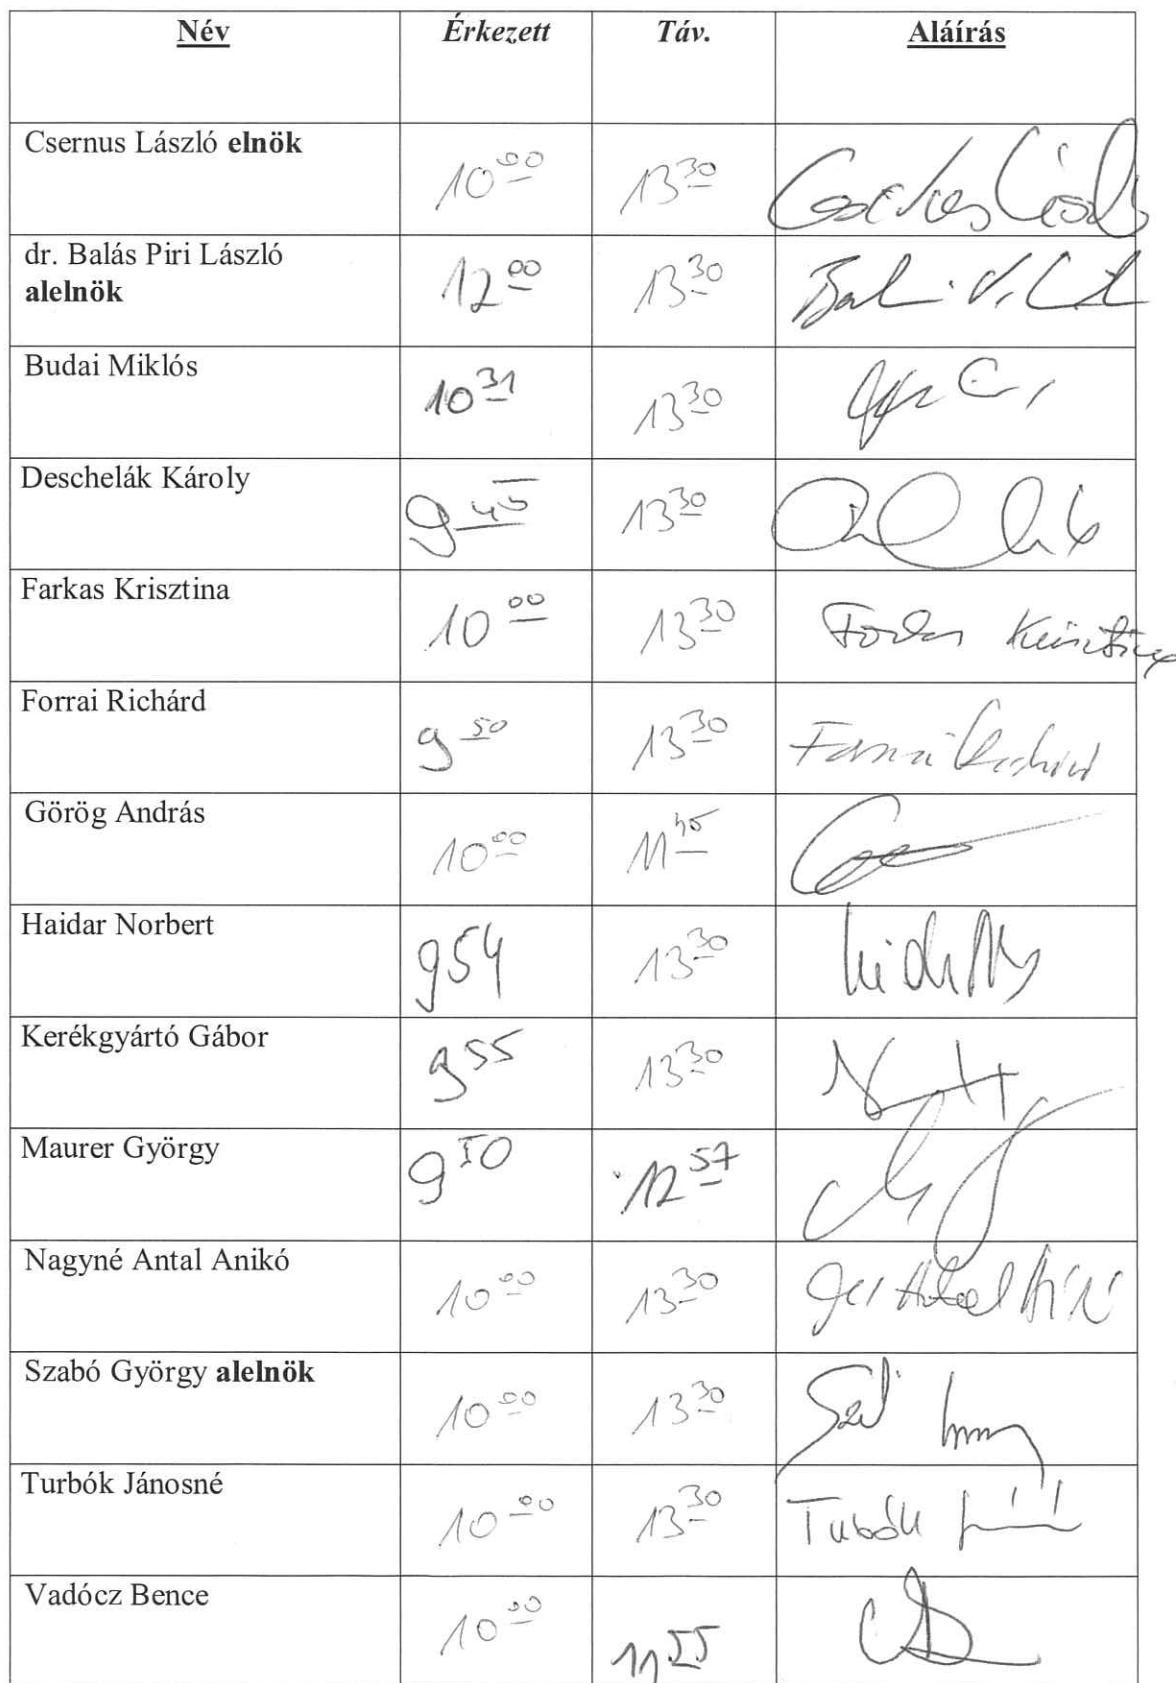 Név Érkezett Táv. Aláírás
Csernus László elnök 10⁰⁰ 13³⁰
dr. Balás Piri László
alelnök 12⁰⁰ 13³⁰
Budai Miklós 10³¹ 13³⁰
Deschelák Károly 9⁴⁵ 13³⁰
Farkas Krisztina 10⁰⁰ 13³⁰ Farkas Krisztina
Forrai Richárd 9⁵⁰ 13³⁰ Forrai Richárd
Görög András 10⁰⁰ 11⁴⁵
Haidar Norbert 9⁵⁴ 13³⁰
Kerékgyártó Gábor 9⁵⁵ 13³⁰
Maurer György 9⁵⁰ 12⁵⁷
Nagyné Antal Anikó 10⁰⁰ 13³⁰
Szabó György alelnök 10⁰⁰ 13³⁰
Turbók Jánosné 10⁰⁰ 13³⁰
Vadócz Bence 10⁰⁰ 11⁵⁵